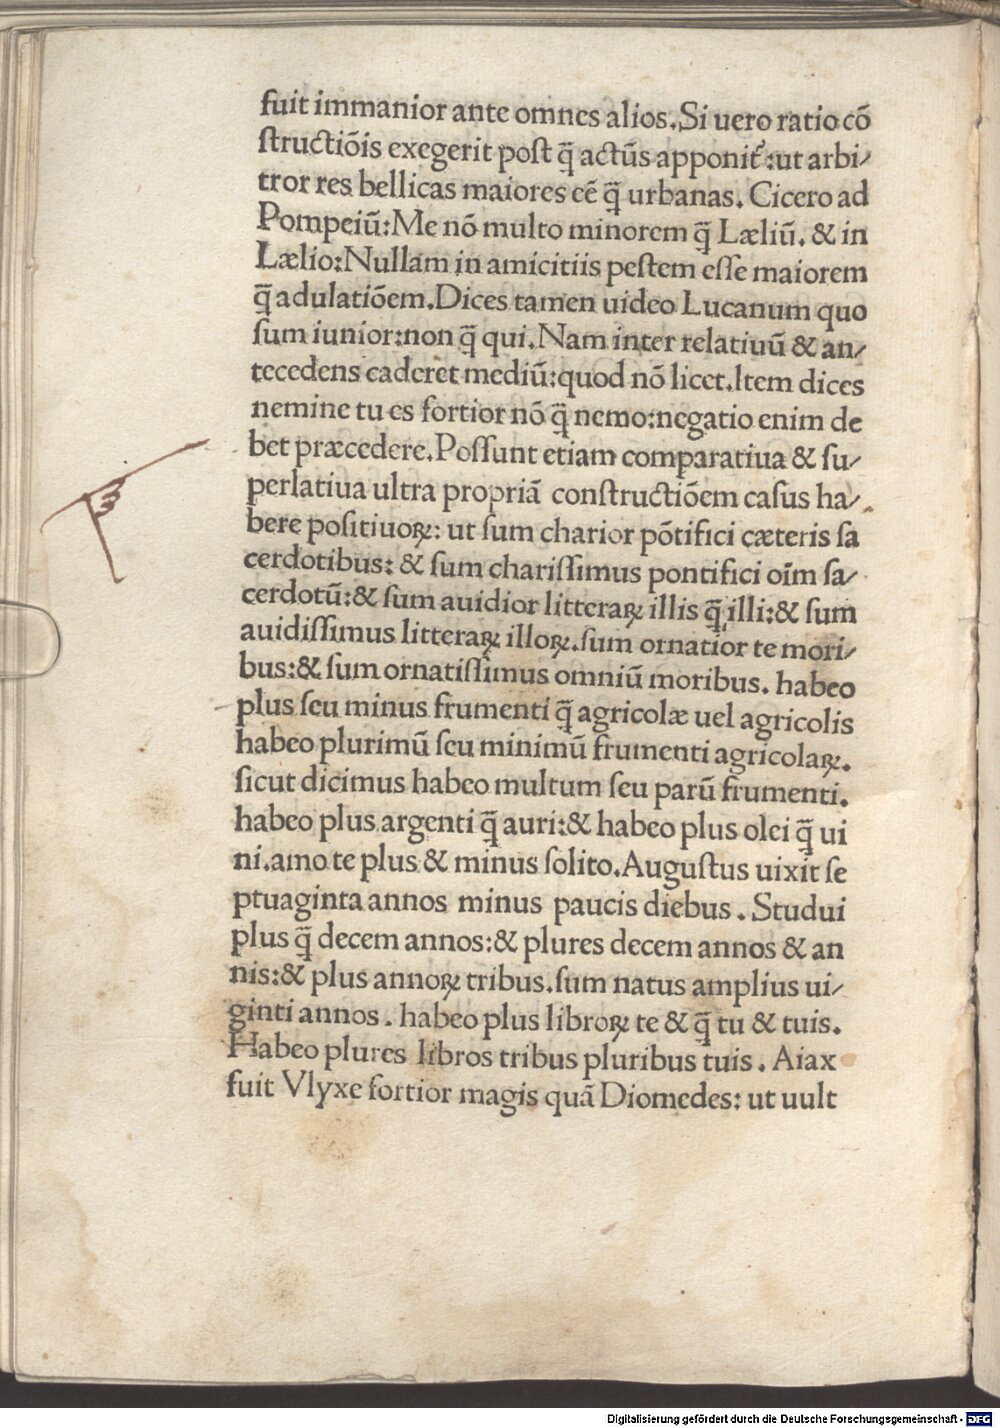 fuit immanior ante omnes alios. Si uero ratio cõ
ſtructiõis exegerit poſt q̄ actũs apponit᷑: ut arbi/
tror res bellicas maiores eē q̄ urbanas. Cicero ad
Pompeiũ: Me nõ multo minorem q̄ Læliũ. & in
Lælio: Nullam in amicitiis peſtem eſſe maiorem
q̄ adulatiõem. Dices tamen uideo Lucanum quo
ſum iunior: non q̄ qui. Nam inter relatiuũ & an/
tecedens caderet mediũ: quod nõ licet. Item dices
nemine tu es fortior nõ q̄ nemo: negatio enim de
bet præcedere. Poſſunt etiam comparatiua & ſu/
perlatiua ultra propriã conſtructiõem caſus ha/
bere poſitiuoꝝ: ut ſum charior põtifici cæteris ſa
cerdotibus: & ſum chariſſimus pontifici oĩm ſa/
cerdotũ: & ſum auidior litteraꝝ illis q̄ illi: & ſum
auidiſſimus litteraꝝ illoꝝ. ſum ornatior te mori/
bus: & ſum ornatiſſimus omniũ moribus. habeo
plus ſeu minus frumenti q̄ agricolæ uel agricolis
habeo plurimũ ſeu minimũ frumenti agricolaꝝ.
ſicut dicimus habeo multum ſeu parũ frumenti.
habeo plus argenti q̄ auri: & habeo plus olei q̄ ui
ni. amo te plus & minus ſolito. Auguſtus uixit ſe
ptuaginta annos minus paucis diebus. Studui
plus q̄ decem annos: & plures decem annos & an
nis: & plus annoꝝ tribus. ſum natus amplius ui/
ginti annos. habeo plus libroꝝ te & q̄ tu & tuis.
Habeo plures libros tribus pluribus tuis. Aiax
fuit Vlyxe fortior magis quã Diomedes: ut uult
Digitalisierung gefördert durch die Deutsche Forschungsgemeinschaft - DFG